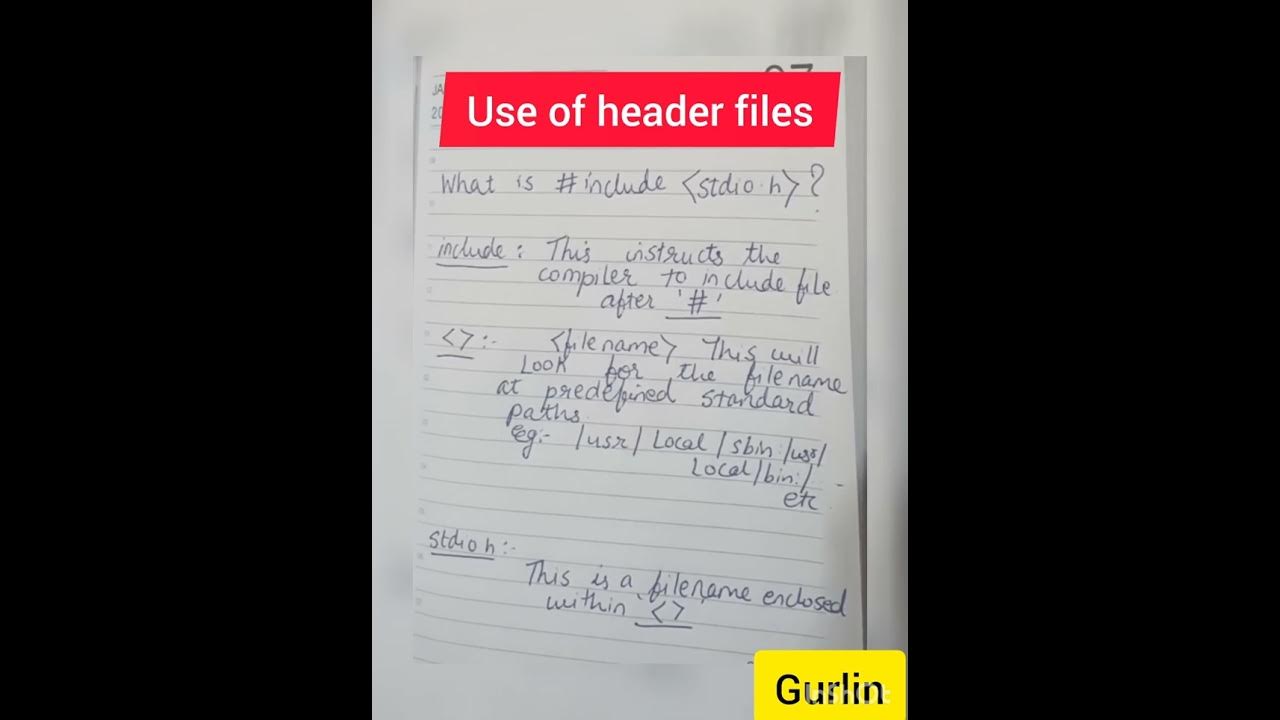 07
JA
20
Use of header files
What is #include <stdio.h>?
include: This instructs the
compiler to include file
after '#'
<>:- <filename> This will
Look for the filename
at predefined standard
paths.
eg:- /usr/Local/sbin:/usr/
Local/bin:/
etc
stdio h:-
This is a filename enclosed
within '<>'
Gurlin
InShot